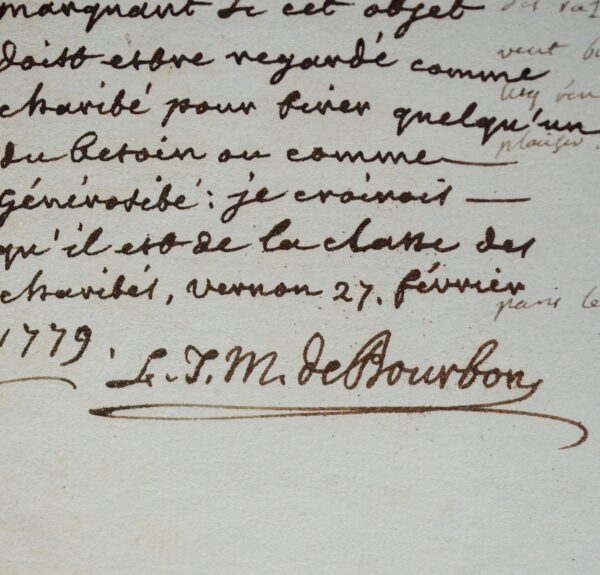 marquant si cet objet
doist estre regardé comme
charité pour tirer quelqu'un
du besoin ou comme
générosité: je croirois
qu'il est de la classe des
charités, vernon 27. février
1779
L. J. M. de Bourbon
des
veut
plaisir